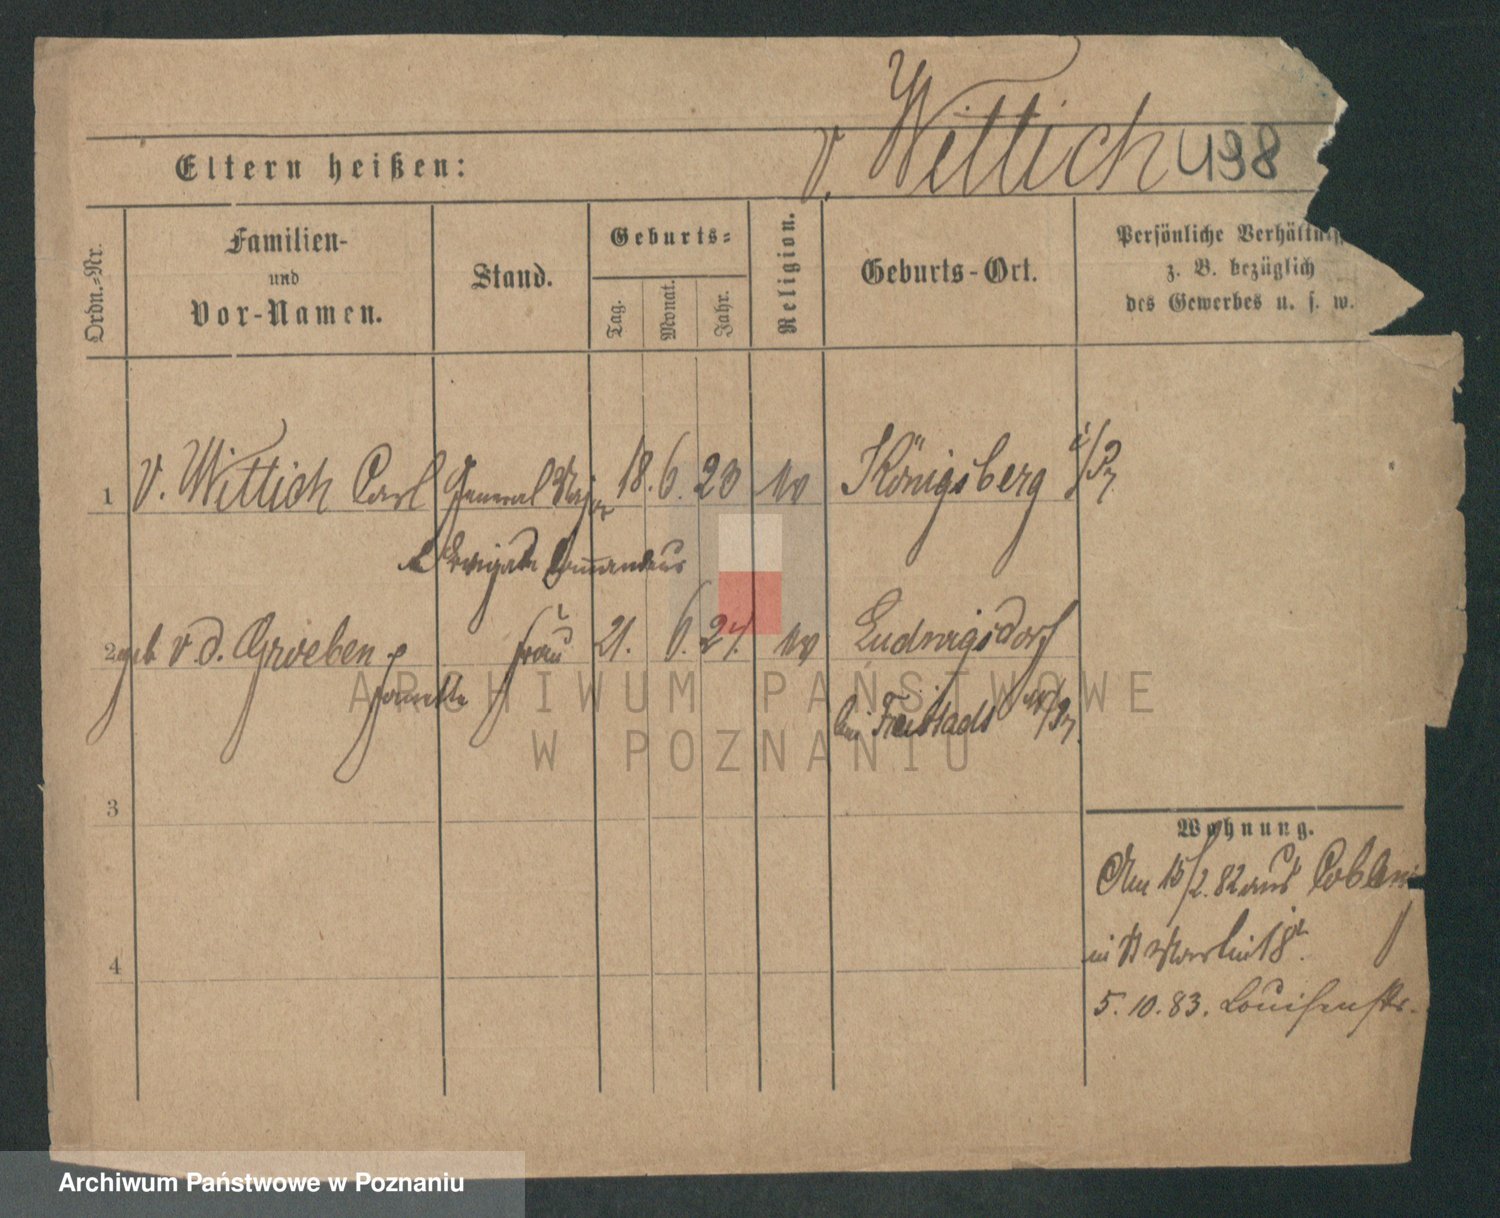 v. Wittich 498
Eltern heißen:
Ordn.-Nr.
Familien-
und
Vor-Namen.
Stand.
Geburts-
Tag.
Monat.
Jahr.
Religion.
Geburts-Ort.
Persönliche Verhältni
z. B. bezüglich
des Gewerbes u. s. w.
1 v. Wittich Carl General Major 18. 6. 23 Königsberg i/Pr
& Brigade Commandeur
2 geb v. d. Groeben Frau 21. 6. 27. Ludwigsdorf
bei Freistadt W/Pr.
3
4
Wohnung.
Am 15/2. 82 aus Coblenz
in St Martin 18
5. 10. 83. Louisenstr.
ARCHIWUM PAŃSTWOWE
W POZNANIU
Archiwum Państwowe w Poznaniu